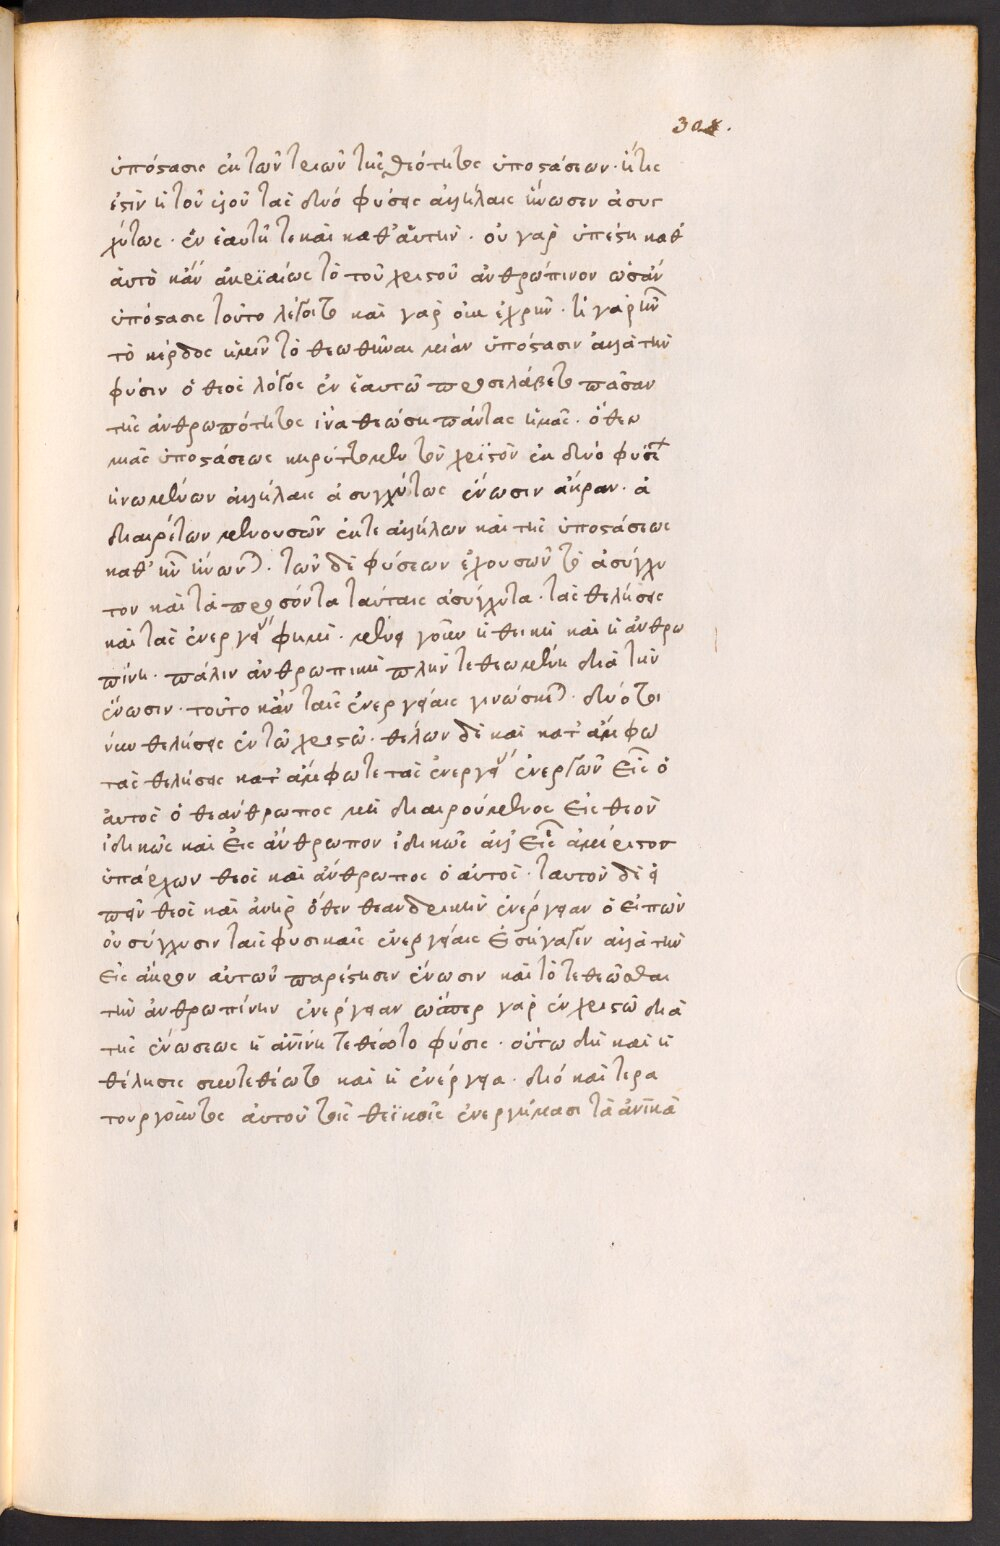 308.
ὑπόστασις ἐκ τῶν τριῶν τῆς θεότητος ὑποστάσεων· ἥτις
ἐστὶν ἡ τοῦ υἱοῦ τὰς δύο φύσεις ἀλλήλαις ἥνωσεν ἀσυγ
χύτως· ἐν ἑαυτῇ τε καὶ καθ' ἁυτήν· οὐ γὰρ ὑπέστη καθ'
ἁυτὸ κἂν ἀκαριαίως τὸ τοῦ χριστοῦ ἀνθρώπινον ὡσὰν
ὑπόστασις τοῦτο λέγοιτο καὶ γὰρ οὐκ ἐχρῆν· τί γὰρ ἦν
τὸ κέρδος ἡμῖν τὸ θεωθῆναι μίαν ὑπόστασιν ἀλλὰ τὴν
φύσιν ὁ θεὸς λόγος ἐν ἑαυτῶ προσελάβετο πᾶσαν
τῆς ἀνθρωπότητος ἵνα θεώση πάντας ἡμᾶς· ὅθεν
μιᾶς ὑποστάσεως κηρύττομεν τὸν χριστὸν ἐκ δύο φύσεων
ἡνωμένων ἀλλήλαις ἀσυγχύτως ἕνωσιν ἄκραν· ἀ
διαιρέτων μενουσῶν ἐκ τε ἀλλήλων καὶ τῆς ὑποστάσεως
καθ' ἣν ἥνωνται. τῶν δὲ φύσεων ἐχουσῶν τὸ ἀσύγχυ
τον καὶ τὰ προσόντα ταύταις ἀσύγχυτα· τὰς θελήσεις
καὶ τὰς ἐνεργείας φημὶ· μένει γοῦν ἡ θεικὴ καὶ ἡ ἀνθρω
πίνη· πάλιν ἀνθρωπικὴ πλὴν τεθεωμένη διὰ τὴν
ἕνωσιν· τοῦτο κἂν ταῖς ἐνεργείαις γινώσκεται· δύο τοι
νυν θελήσεις ἐν τῶ χριστῶ· θέλων δὲ καὶ κατ' ἄμφω
τὰς θελήσεις κατ' ἄμφω τε τὰς ἐνεργείας ἐνεργῶν εἷς ὁ
ἀυτὸς ὁ θεάνθρωπος μὴ διαιρούμενος εἰς θεὸν
ἰδικῶς καὶ εἰς ἄνθρωπον ἰδικῶς ἀλλ' εἷς ἀμέριστον
ὑπάρχων θεὸς καὶ ἄνθρωπος ὁ αὐτὸς· ταυτὸν δὲ εἰ
πεῖν θεὸς καὶ ἀνὴρ ὅθεν θεανδρικὴν ἐνέργειαν ὁ εἰπὼν
οὐ σύγχυσιν ταῖς φυσικαῖς ἐνεργείαις εἰσήγαγεν ἀλλὰ τὴν
εἰς ἄκρον αὐτῶν παρέστησεν ἕνωσιν καὶ τὸ τεθεῶσθαι
τὴν ἀνθρωπίνην ἐνέργειαν ὥσπερ γὰρ ἐν χριστῶ διὰ
τῆς ἑνώσεως ἡ ἀνίνη τεθέωτο φύσις· οὕτω δὴ καὶ ἡ
θέλησις συνετεθέωτο καὶ ἡ ἐνέργεια· διὸ καὶ τερα
τουργοῦντος αὐτοῦ τοῖς θεϊκοῖς ἐνεργήμασι τὰ ἀνικὰ